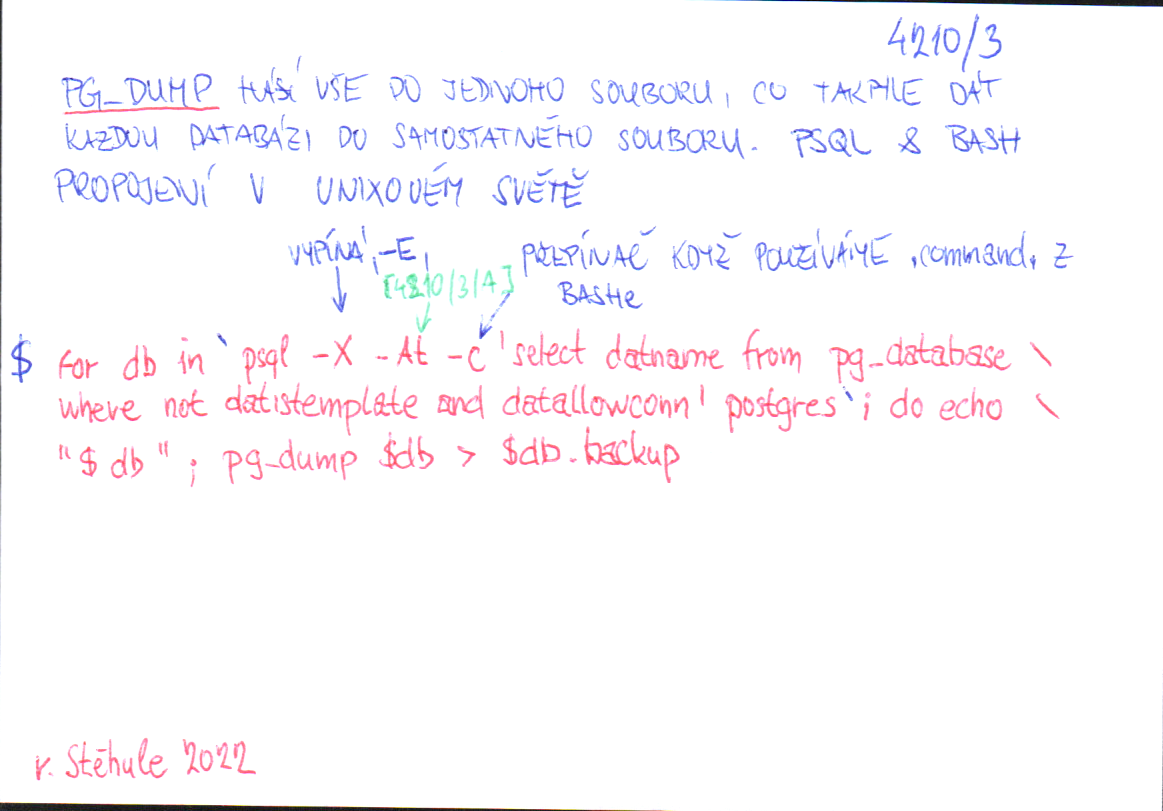 4210/3
PG_DUMP HÁŠÍ VŠE DO JEDNOHO SOUBORU, CO TAKHLE DÁT
KAŽDOU DATABÁZI DO SAMOSTATNÉHO SOUBORU. PSQL & BASH
PROPOJENÍ V UNIXOVÉM SVĚTĚ
VYPÍNÁ '-E' PŘEPÍNAČ KDYŽ POUŽÍVÁME 'command' Z
[4210/3/A] BASHe
$ for db in `psql -X -At -c 'select datname from pg_database \
where not datistemplate and datallowconn' postgres`; do echo \
"$db"; pg_dump $db > $db.backup
r. Stěhule 2022